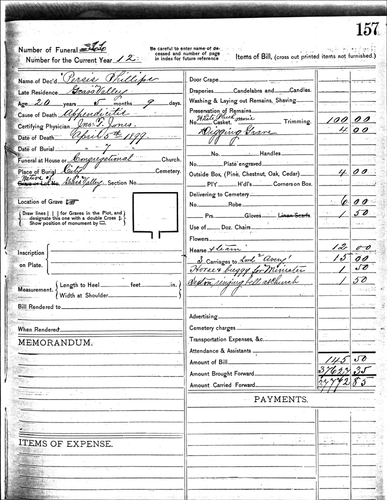 157
Number of Funeral
Number for the Current Year 12
Be careful to enter name of deceased and number of page in index for future reference
Items of Bill, (cross out printed items not furnished.)
Name of Dec'd Persis Phillips
Late Residence Grass Valley
Age 20 years 5 months 9 days.
Cause of Death Appendicitis
Certifying Physician Jones
Date of Death April 5th 1899
Date of Burial " 7
Funeral at House or Congregational Church.
Place of Burial City Cemetery.
Native of Grass Valley Section No.
Location of Grave
Draw lines for Graves in the Plot, and designate this one with a double Cross
Show position of monument by
Inscription on Plate.
Measurement. Length to Heel feet in.
Width at Shoulder
Bill Rendered to
When Rendered
MEMORANDUM.
ITEMS OF EXPENSE.
Door Crape
Draperies Candelabra and Candles.
Washing & Laying out Remains, Shaving
Preservation of Remains
White Plush Casket, Trimming, 100 00
Digging Grave 4 00
No. Handles
No. Plate engraved
Outside Box, (Pine, Chestnut, Oak, Cedar) 4 00
PIY H'd'l's Comerson Box.
Delivering to Cemetery
No. Robe 6 00
Prs. Gloves Linen Scarfs 1 50
Use of Doz. Chair
Flowers
Hearse & team 12 00
3 Carriages to 15 00
Horse & buggy for Minister 1 50
Sexton ringing bell at Church 1 50
Advertising
Cemetery charges
Transportation Expenses, &c.
Attendance & Assistants
Amount of Bill 145 50
Amount Brought Forward 37627 35
Amount Carried Forward 37772 85
PAYMENTS.